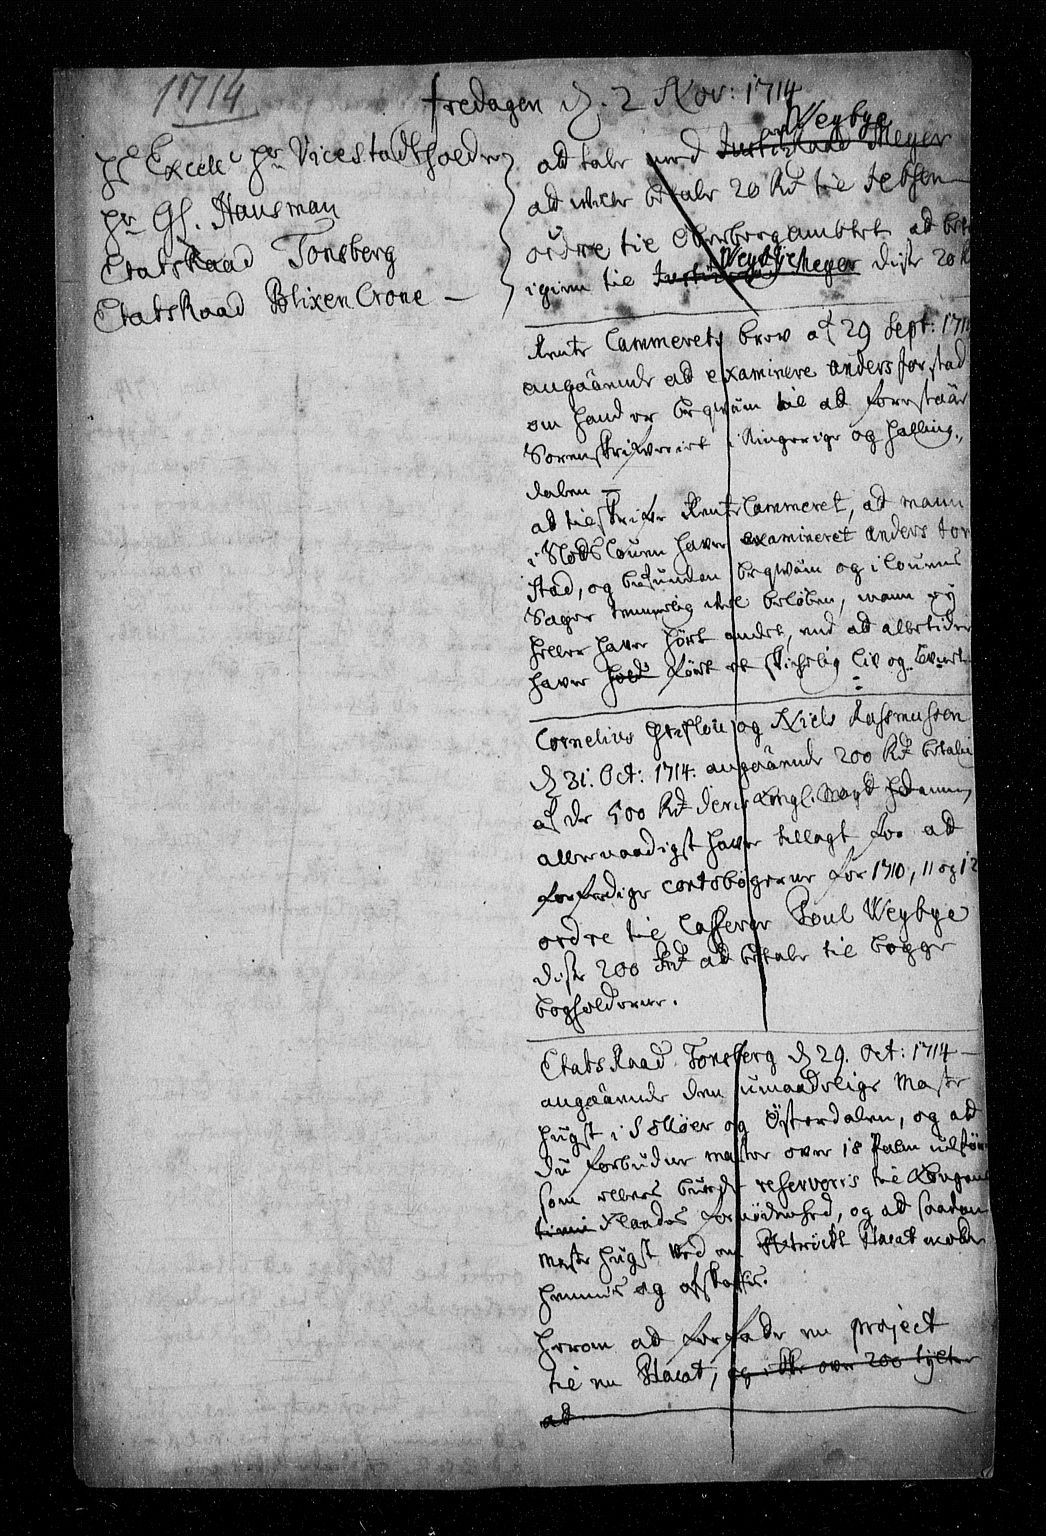 1714
fredagen d. 2 Nov: 1714
Hs Excell: Hr Vicestadtholder
Hr Gh. Hausman
EtatsRaad Tonsberg
EtatsRaad Blixencrone
Weybye
att tale med JustizRaad Meyer
att betale 20 Rd til Jebsen
ordre til Oberbergambtet at bet
igien til Weybye Meyer disse 20 R
Rente Cammerets brev af 29 Sept: 171
angaaende ad examinere anders forstad
om hand er beqwäm til ad forestaar
Sorenskriveriet i Ringerige og Halling,,
dalen
ad tilskrive Rente Cammeret, ad mann
i Slodslouen haver examineret anders for
stad, og befunden beqwäm og i louens
Sager temmelig vel beløben, mann ey
heller haver hørt andet, end ad alletider
haver hold ført et skichelig liv og levnet
Cornelius og Niels Rasmussen
d 31. Oct: 1714. angaaende 200 Rd betaling
af de 500 Rd deris Kongl. Mayt dennem
allernaadigst haver tillagt for ad
forferdige contobøgerne for 1710, 11 og 12
ordre til Casserer Poul Weybye
disse 200 Rd ad betale til begge
bogholderne.
EtatsRaad Tonsberg d 29. Oct: 1714
angaaende den umaadelige Maste
hugst i Solløer og Østerdalen, og ad
du forbudne master over 18 Palm udføris
som ellers burde reserveris til Kongens
Flaades fornødenhed, og ad saadan
maste hugst ved en Placat motte
hemmis og afskaffis.
herom ad forfade en project
til en Placat, og ikke over 200 tylter
ad